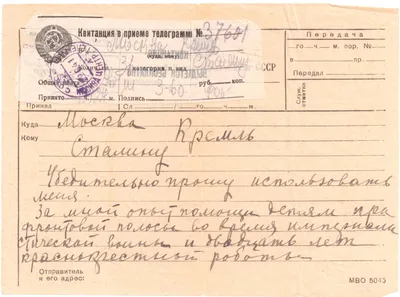 Квитанция в приеме телеграммы № 37601
Москва
(куда, кому)
СССР
Собрано руб. коп.
Принято Подпись
Принял
Передача
го — ч. — м. пор. №
го — ч. — м.
Передал
Служ. отметки
Куда Москва Кремль
Кому Сталину
Убедительно прошу использовать
меня.
За мной опыт помощи детям при
фронтовой полосы во время империали
стической войны и двадцать лет
краснокрестной работы
Отправитель
и его адрес:
МВО 5045